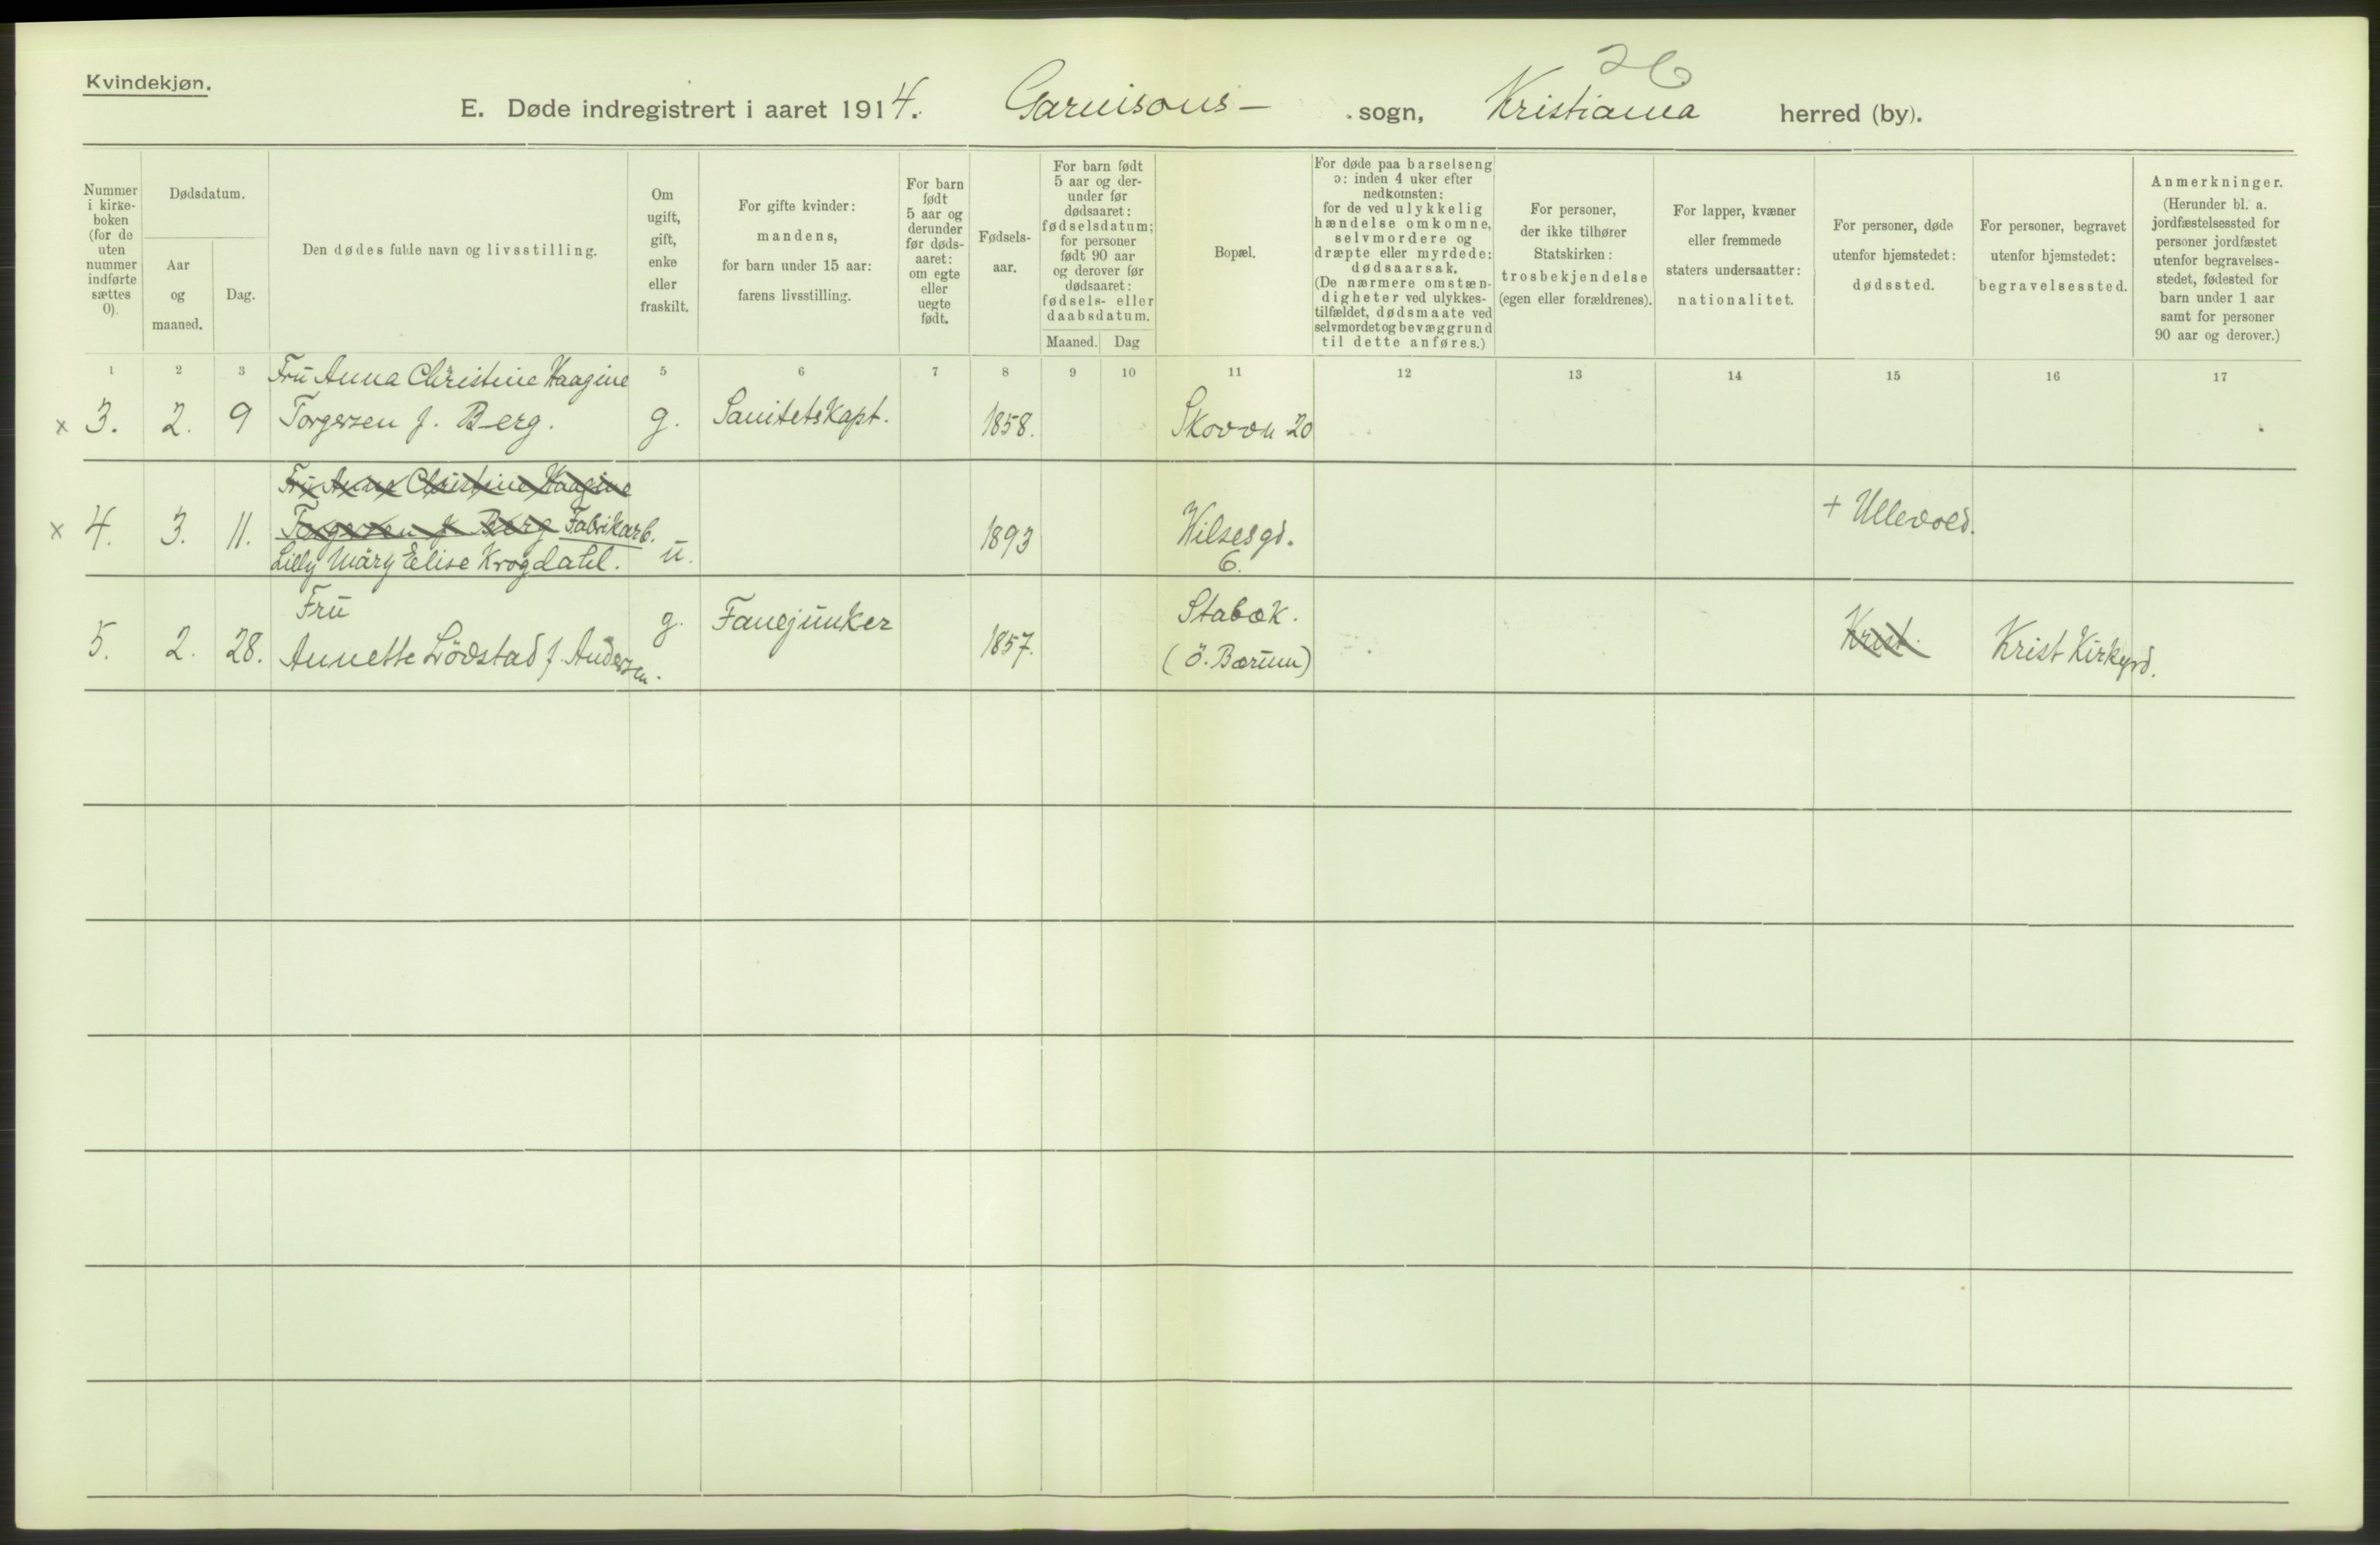 26
Kvindekjøn.
E. Døde indregistrert i aaret 1914. Garnisons- sogn, Kristiania herred (by).
Nummer
i kirke-
boken
(for de
uten
nummer
indførte
sættes
0).
Dødsdatum.
Aar
og
maaned.
Dag.
Den dødes fulde navn og livsstilling.
Om
ugift,
gift,
enke
eller
fraskilt.
For gifte kvinder:
mandens,
for barn under 15 aar:
farens livsstilling.
For barn
født
5 aar og
derunder
før døds-
aaret:
om egte
eller
uegte
født.
Fødsels-
aar.
For barn født
5 aar og der-
under før
dødsaaret:
fødselsdatum;
for personer
født 90 aar
og derover før
dødsaaret:
fødsels- eller
daabsdatum.
Maaned. Dag
Bopæl.
For døde paa barselseng
ɔ: inden 4 uker efter
nedkomsten:
for de ved ulykkelig
hændelse omkomne,
selvmordere og
dræpte eller myrdede:
dødsaarsak.
(De nærmere omstæn-
digheter ved ulykkes-
tilfældet, dødsmaate ved
selvmordet og bevæggrund
til dette anføres.)
For personer,
der ikke tilhører
Statskirken:
trosbekjendelse
(egen eller forældrenes).
For lapper, kvæner
eller fremmede
staters undersaatter:
nationalitet.
For personer, døde
utenfor hjemstedet:
dødssted.
For personer, begravet
utenfor hjemstedet:
begravelsessted.
Anmerkninger.
(Herunder bl. a.
jordfæstelsessted for
personer jordfæstet
utenfor begravelses-
stedet, fødested for
barn under 1 aar
samt for personer
90 aar og derover.)
1 2 3 5 6 7 8 9 10 11 12 13 14 15 16 17
Fru Anna Christine Haagine
x 3. 2. 9 Torgersen f. Berg. g. Sanitetskapt. 1858. Skovvn 20
Fru Anna Christine Haagine
x 4. 3. 11. Torgersen f. Berg Fabrikarb. 1893 Wilsesgd. + Ullevold.
Lilly Mary Elise Krogdahl. u. 6.
Fru g. Fanejunker Stabæk.
5. 2. 28. Annette Lödstad f. Andersen. 1857. (Ö. Bærum) Krist. Krist Kirkegrd.